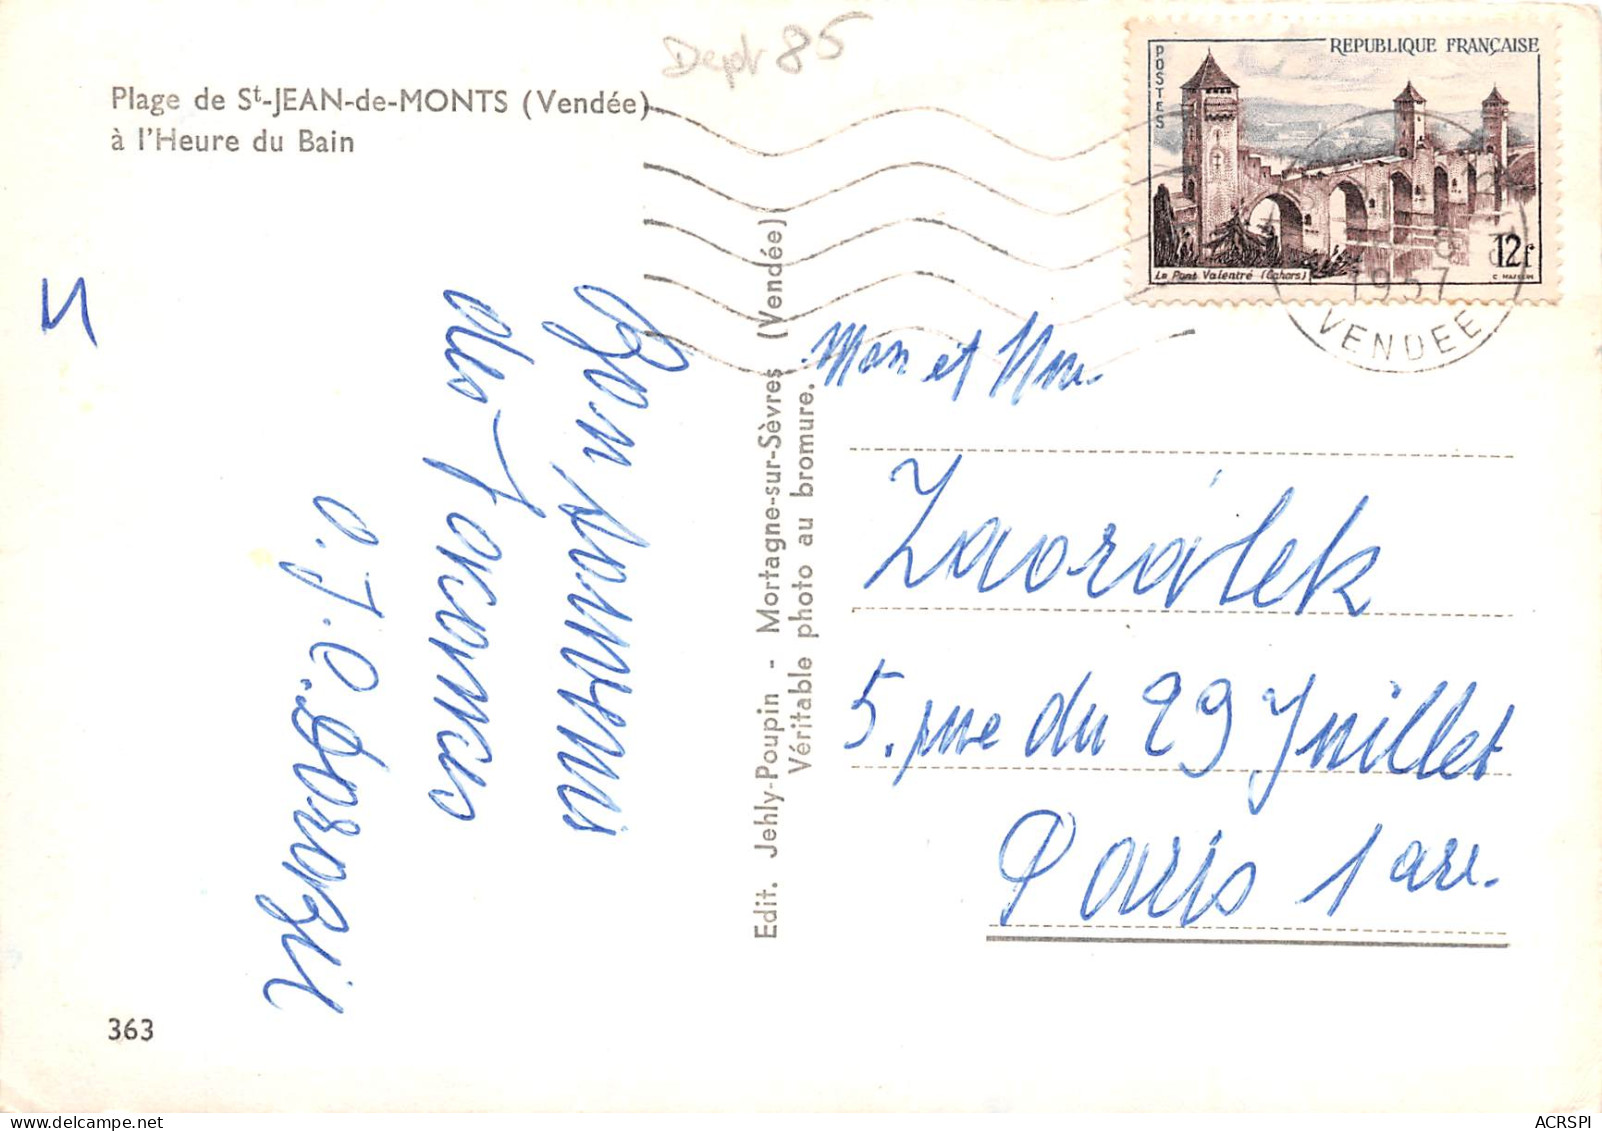 Dept 85
Plage de St-JEAN-de-MONTS (Vendée)
à l'Heure du Bain
POSTES
REPUBLIQUE FRANÇAISE
Le Pont Valentré (Cahors)
12f
1957
VENDEE
Bon souvenir
des
363
Edit. Jehly-Poupin - Mortagne-sur-Sèvres (Vendée)
Véritable photo au bromure.
Mon et Mme
Zaorálek
5. rue du 29 Juillet
Paris 1 arr.
ACRSPI